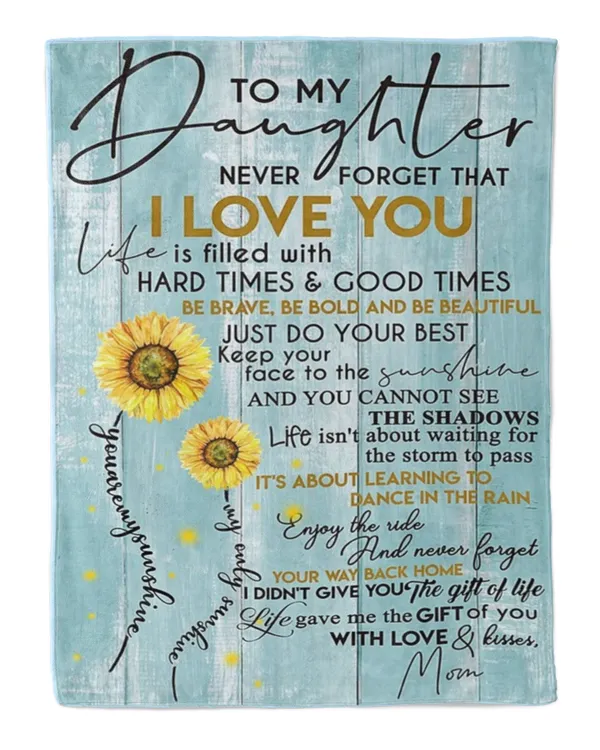 TO MY
Daughter
NEVER FORGET THAT
I LOVE YOU
Life is filled with
HARD TIMES & GOOD TIMES
BE BRAVE, BE BOLD AND BE BEAUTIFUL
JUST DO YOUR BEST
Keep your
face to the sunshine
AND YOU CANNOT SEE
THE SHADOWS
Life isn't about waiting for
the storm to pass
IT'S ABOUT LEARNING TO
DANCE IN THE RAIN
Enjoy the ride
And never forget
YOUR WAY BACK HOME
I DIDN'T GIVE YOU The gift of life
Life gave me the GIFT of you
WITH LOVE & kisses,
Mom
youaremysunshine
my only sunshine